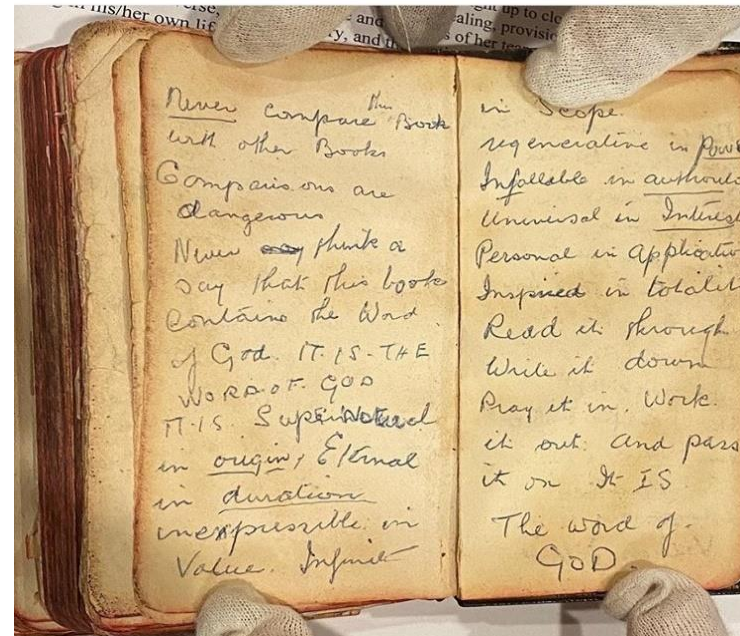 in his/her own lif
and
ry, and th
ght up to clo
ealing, provisio
s of her tea
Never compare this Book
with other Books
Comparisons are
dangerous
Never think or
say that this book
contains the Word
of God. IT IS - THE
WORD OF GOD
IT IS Supernatural
in origin, Eternal
in duration
inexpressible in
Value. Infinite
in Scope.
regenerative in Powe
Infallable in authorit
Universal in Interes
Personal in Applicatio
Inspired in totalit
Read it through
Write it down
Pray it in. Work
it out. and pass
it on It IS
The word of.
GOD.